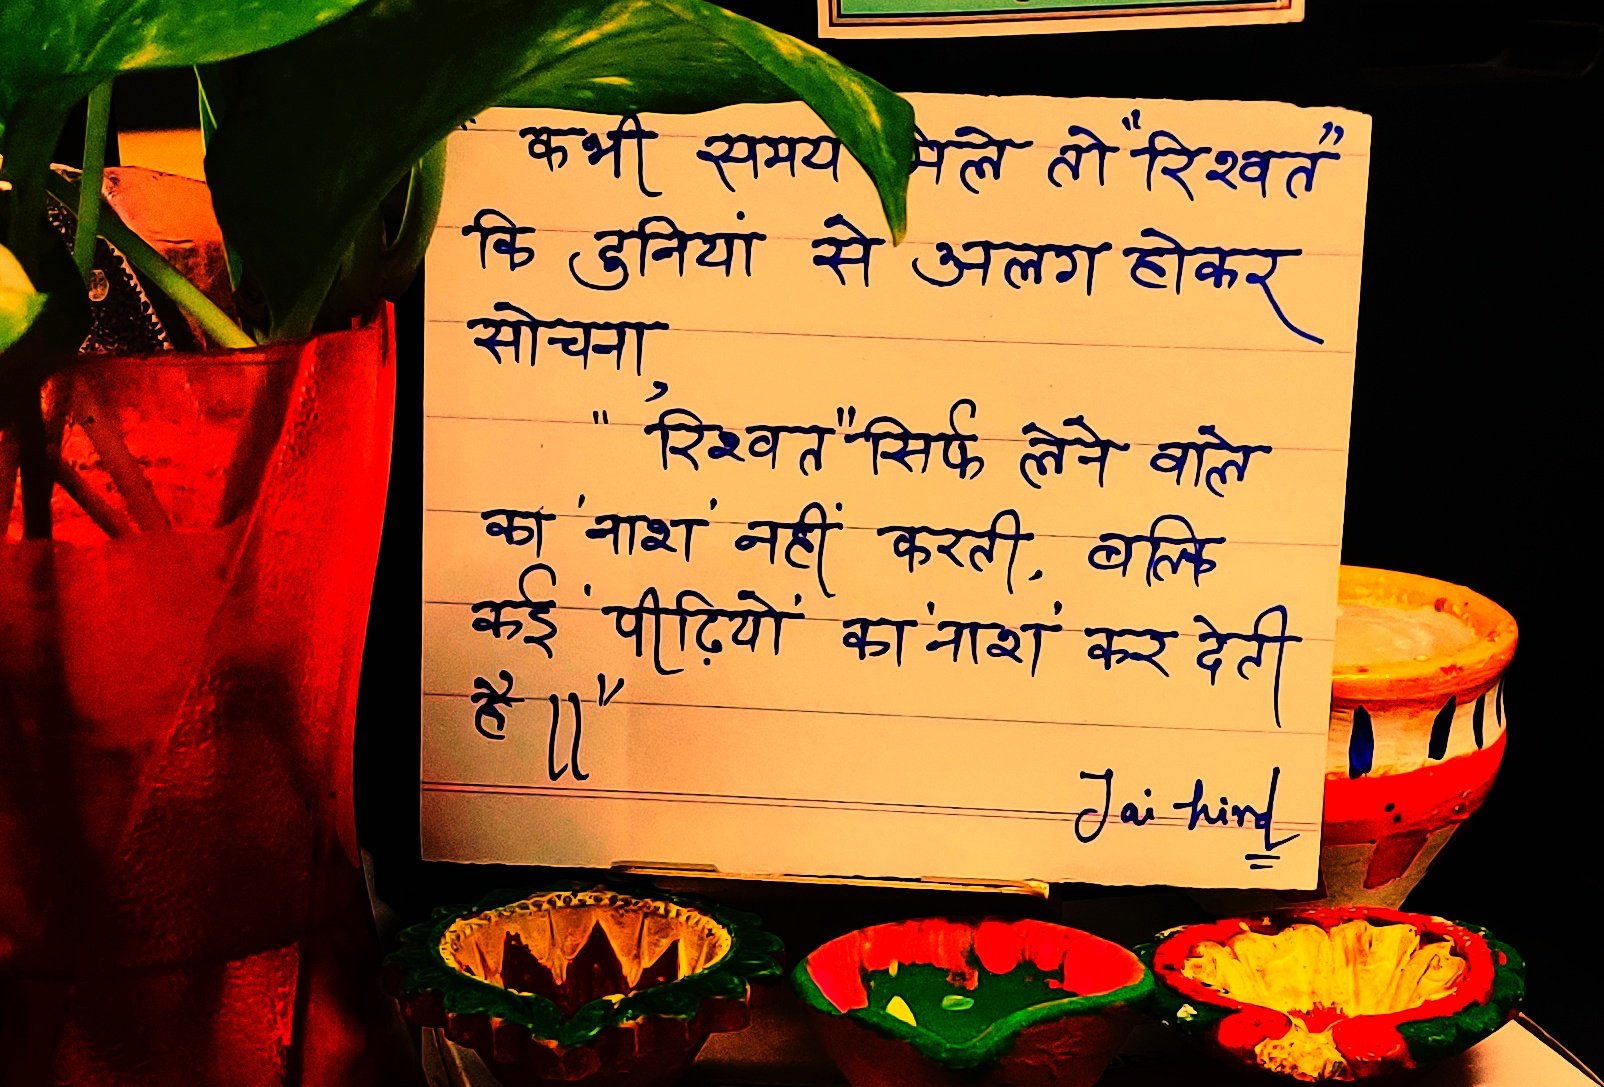 " कभी समय मिले तो "रिश्वत"
कि दुनियां से अलग होकर
सोचना,
" रिश्वत" सिर्फ लेने वाले
का 'नाश' नहीं करती, बल्कि
कई 'पीढ़ियों' का 'नाश' कर देती
है ॥"
Jai hind